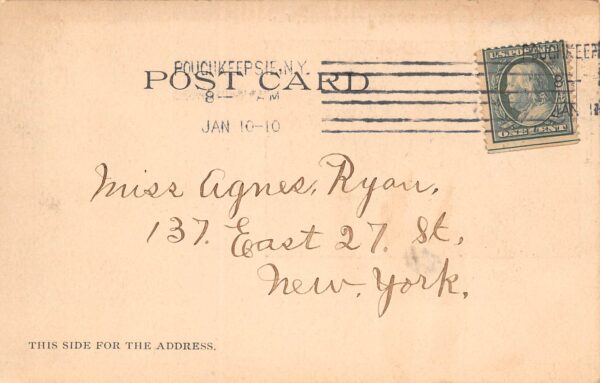 POUGHKEEPSIE, N.Y.
POST CARD
8 – PM
JAN 10–10
U.S. POSTAGE
ONE CENT
POUGHKEEP
8–
JAN 1
Miss Agnes, Ryan,
137. East 27. St,
New. York,
THIS SIDE FOR THE ADDRESS.